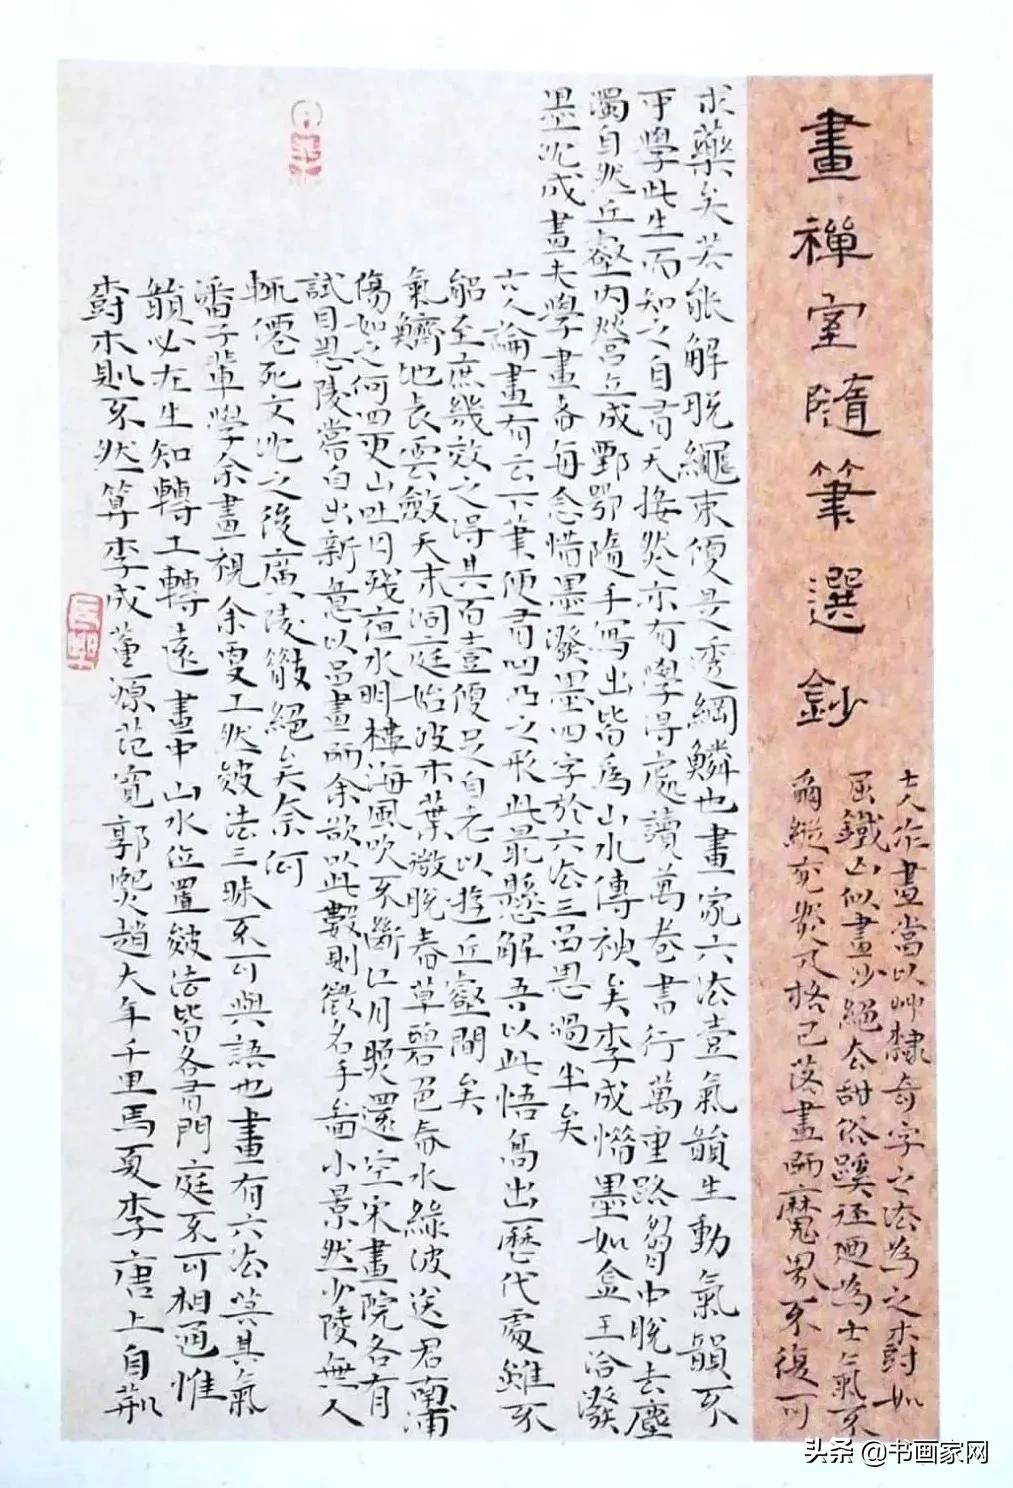 畫禪室隨筆選鈔
士人作畫當以艸隸奇字之法為之樹如
屈鐵山似畫沙絕去甜俗蹊徑迺為士氣不
爾縱儼然及格已落畫師魔界不復可
求藥矣若能解脫繩束便是透網鱗也畫家六法壹氣韻生動氣韻不
可學此生而知之自有天授然亦有學得處讀萬卷書行萬里路胷中脫去塵
濁自然丘壑內營立成鄄鄂隨手寫出皆為山水傳神矣李成惜墨如金王洽潑
墨瀋成畫夫學畫者每念惜墨潑墨四字於六法三品思過半矣
古人論畫有云下筆便有凹凸之形此最懸解吾以此悟高出歷代處雖不
能至庶幾效之得其百壹便足自老以遊丘壑間矣
氣霽地表雲斂天末洞庭始波木葉微脫春草碧色春水綠波送君南浦
傷如之何四更山吐月殘夜水明樓海風吹不斷江月照還空宋畫院各有
試目思陵嘗自出新意以品畫師余欲以此數則徵名手圖小景然少陵無人
輒僊死文沈之後廣陵散絕矣奈何
潘子輩學余畫視余更工然皴法三昧不可與語也畫有六法若其氣
韻必在生知轉工轉遠 畫中山水位置皴法皆各有門庭不可相通惟
樹木則不然算李成董源范寬郭熙趙大年千里馬夏李唐上自荊
头条 @书画家网